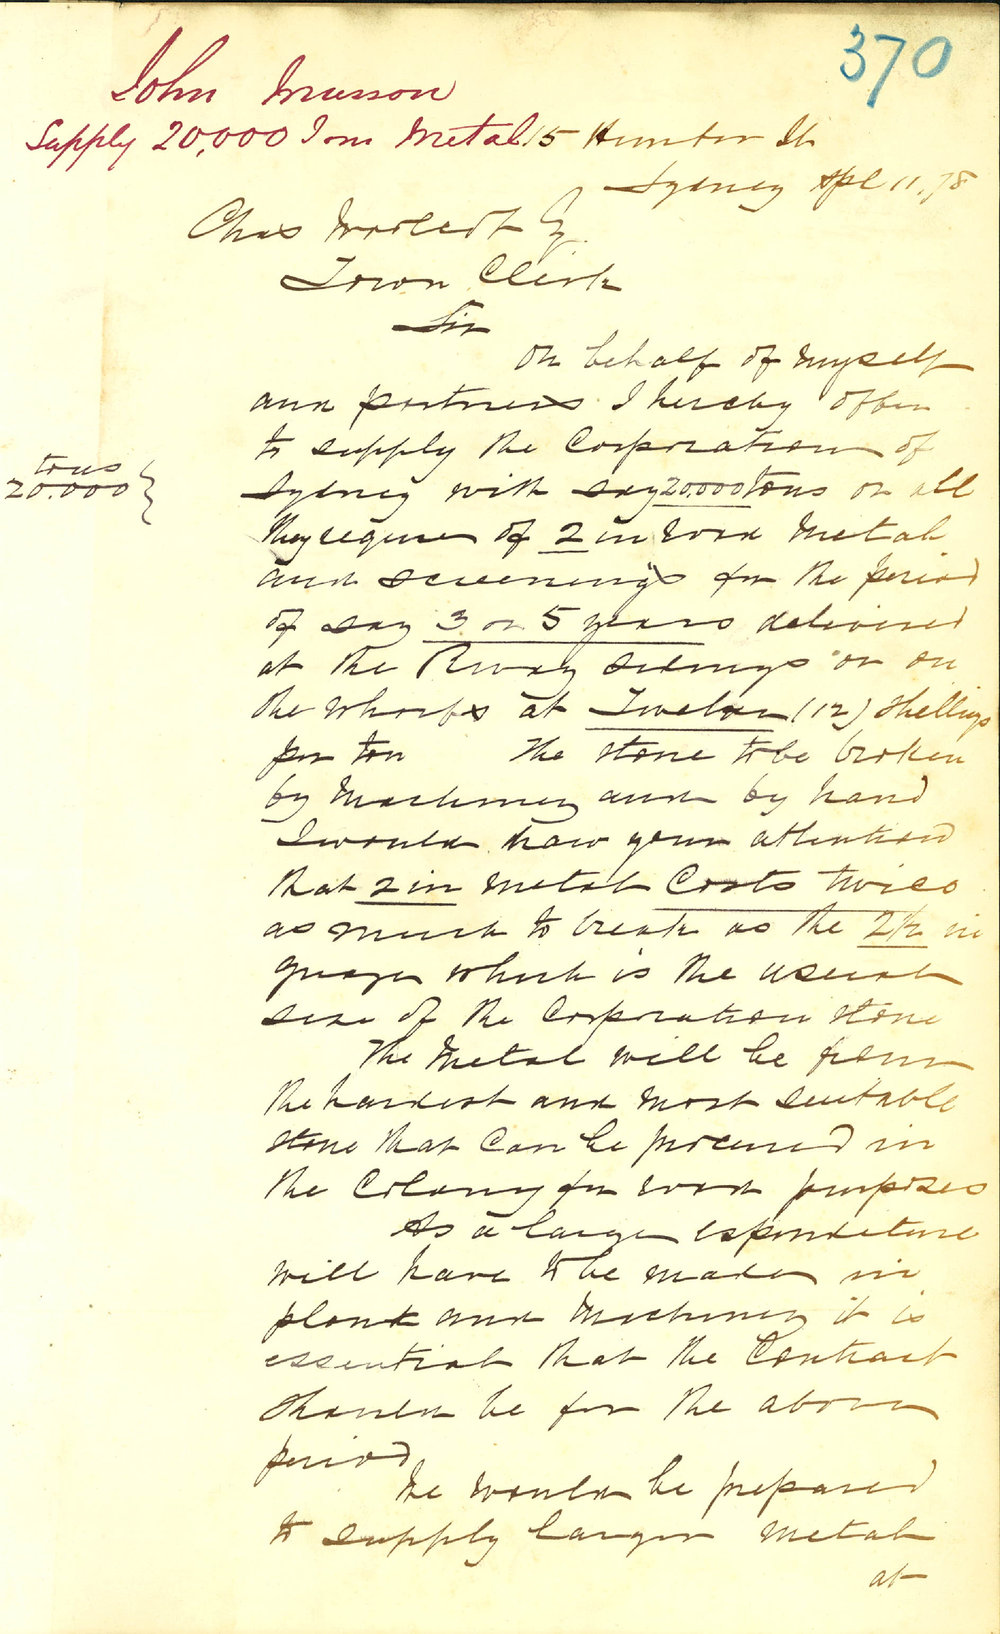 370
John Musson
Supply 20,000 Tons Metal
15 Hunter St
Sydney Apl 11, 78
Chas Woolcott Esq
Town Clerk
Sir
On behalf of myself
and partners I hereby offer
to supply the Corporation of
tons
20.000
Sydney with say 20,000 tons or all
they require of 2 in road metal
and screenings for the period
of say 3 or 5 years delivered
at the Rway sidings or on
the wharfs at Twelve (12) shillings
per ton The stone to be broken
by machinery and by hand
I would draw your attention
that 2 in metal Costs twice
as much to break as the 2½ in
guage which is the usual
size of the Corporation stone
The Metal will be from
the hardest and most suitable
stone that can be procured in
the Colony for road purposes
As a large expenditure
will have to be made in
plant and machinery it is
essential that the Contract
should be for the above
period
We would be prepared
to supply larger metal
at